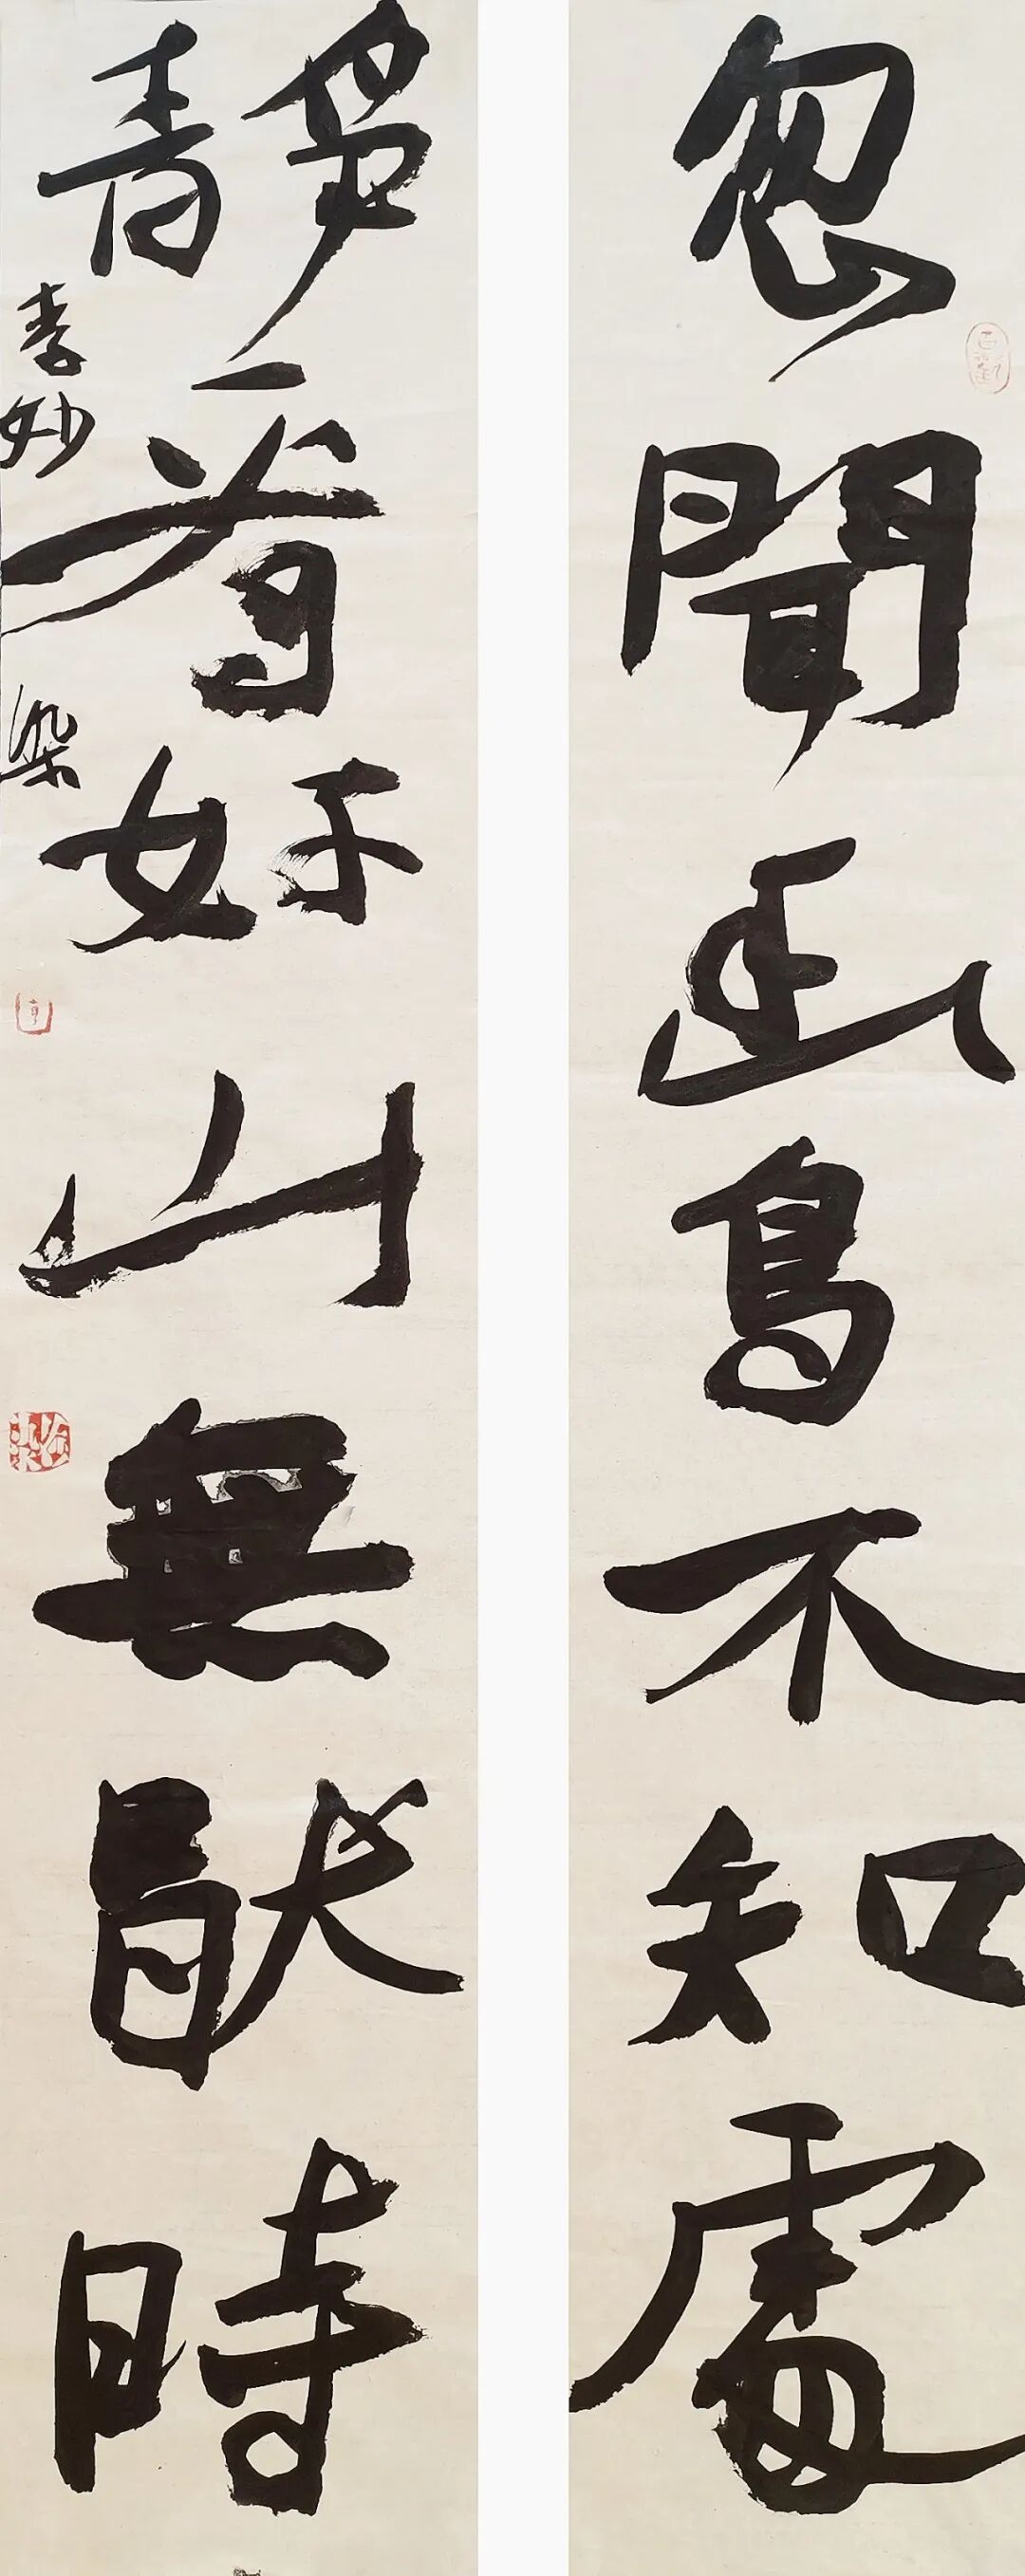 忽聞幽鳥不知處
靜看好山無厭時
李妙
染